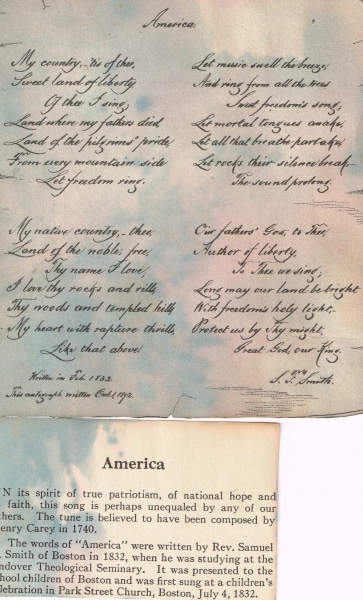 America.
My country,– 'tis of thee,
Sweet land of liberty
Of thee I sing;
Land where my fathers died,
Land of the pilgrims' pride,
From every mountain side
Let freedom ring.
My native country,– thee,
Land of the noble, free,
Thy name I love;
I love thy rocks and rills,
Thy woods and templed hills,
My heart with rapture thrills,
Like that above.
Let music swell the breeze,
And ring from all the trees
Sweet freedom's song;
Let mortal tongues awake,
Let all that breathe partake,
Let rocks their silence break,–
The sound prolong.
Our fathers' God, to Thee,
Author of liberty,
To Thee we sing;
Long may our land be bright
With freedom's holy light.
Protect us by Thy might,
Great God, our King.
Written in Feb. 1832.
This autograph written Oct. 1, 1892.
S. F. Smith.
America
N its spirit of true patriotism, of national hope and
faith, this song is perhaps unequaled by any of our
thers. The tune is believed to have been composed by
enry Carey in 1740.
The words of "America" were written by Rev. Samuel
. Smith of Boston in 1832, when he was studying at the
ndover Theological Seminary. It was presented to the
hool children of Boston and was first sung at a children's
lebration in Park Street Church, Boston, July 4, 1832.